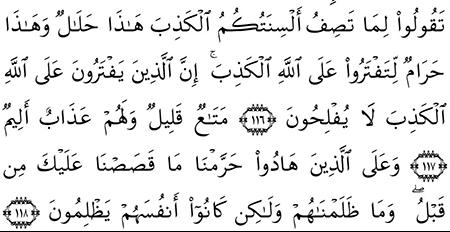 تَقُولُوا۟ لِمَا تَصِفُ أَلْسِنَتُكُمُ ٱلْكَذِبَ هَـٰذَا حَلَـٰلٌۭ وَهَـٰذَا
حَرَامٌۭ لِّتَفْتَرُوا۟ عَلَى ٱللَّهِ ٱلْكَذِبَ ۚ إِنَّ ٱلَّذِينَ يَفْتَرُونَ عَلَى ٱللَّهِ
ٱلْكَذِبَ لَا يُفْلِحُونَ ﴿١١٦﴾ مَتَـٰعٌۭ قَلِيلٌۭ وَلَهُمْ عَذَابٌ أَلِيمٌۭ
﴿١١٧﴾ وَعَلَى ٱلَّذِينَ هَادُوا۟ حَرَّمْنَا مَا قَصَصْنَا عَلَيْكَ مِن
قَبْلُ ۖ وَمَا ظَلَمْنَـٰهُمْ وَلَـٰكِن كَانُوٓا۟ أَنفُسَهُمْ يَظْلِمُونَ ﴿١١٨﴾